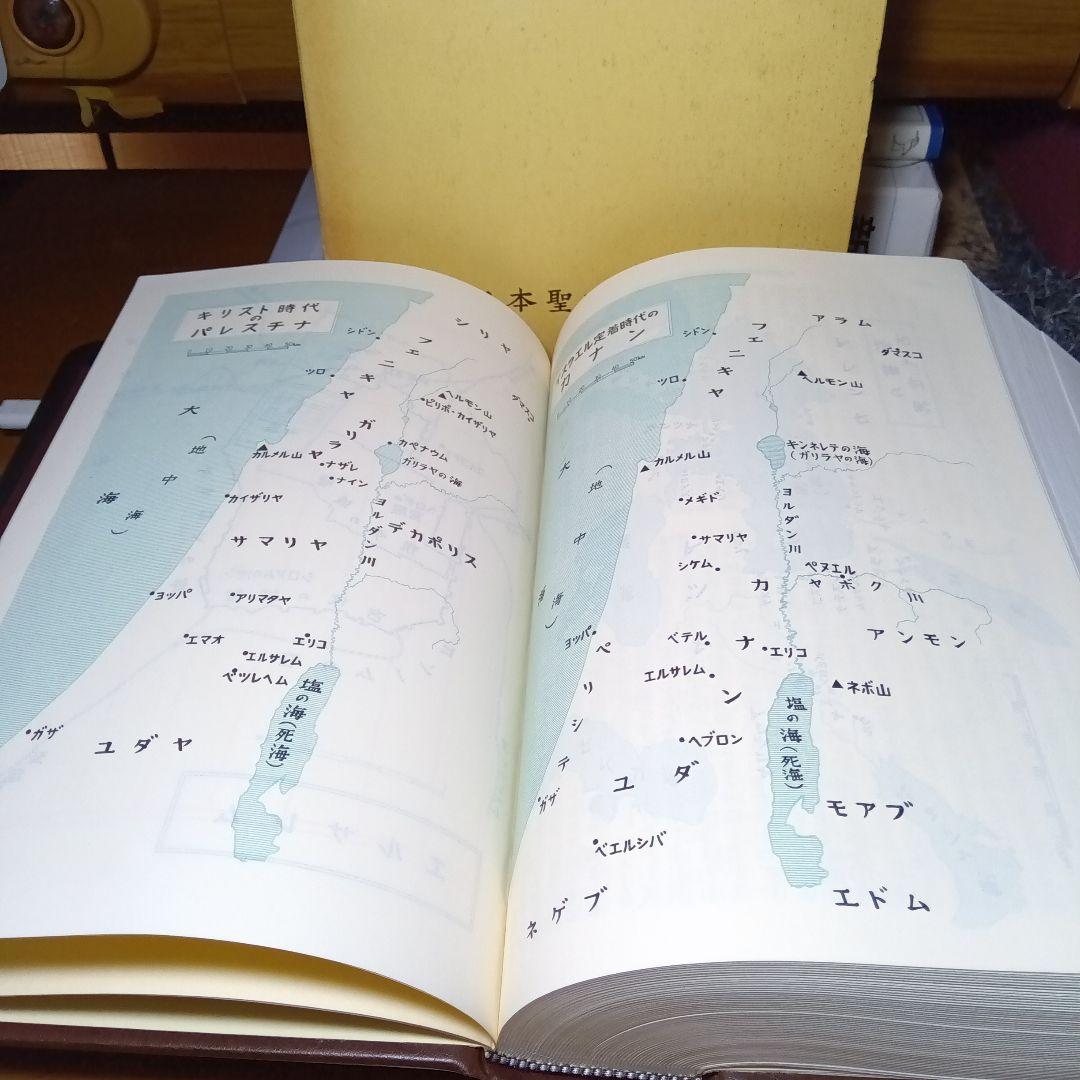 本聖
キリスト時代
の
パレスチナ
シドン
シリヤ
フェニキヤ
ツロ
ヘルモン山
ピリポ・カイザリヤ
ダマスコ
大(地中海)海
ガリラヤ
カペナウム
ガリラヤの海
カルメル山
ナザレ
ナイン
カイザリヤ
ヨルダン川
デカポリス
サマリヤ
ヨッパ
アリマタヤ
エマオ
エリコ
エルサレム
ベツレヘム
塩の海(死海)
ガザ
ユダヤ
エルサレム
イスラエル定着時代の
カナン
50km
シドン
フェニキヤ
アラム
ダマスコ
ツロ
ヘルモン山
大(地中海)海
カルメル山
キンネレテの海
(ガリラヤの海)
メギド
ヨルダン川
サマリヤ
シケム
ペヌエル
ヤボク川
カナン
アンモン
ヨッパ
ベテル
エリコ
エルサレム
ネボ山
ペリシテ
塩の海(死海)
ヘブロン
ユダ
ガザ
モアブ
ベエルシバ
ネゲブ
エドム